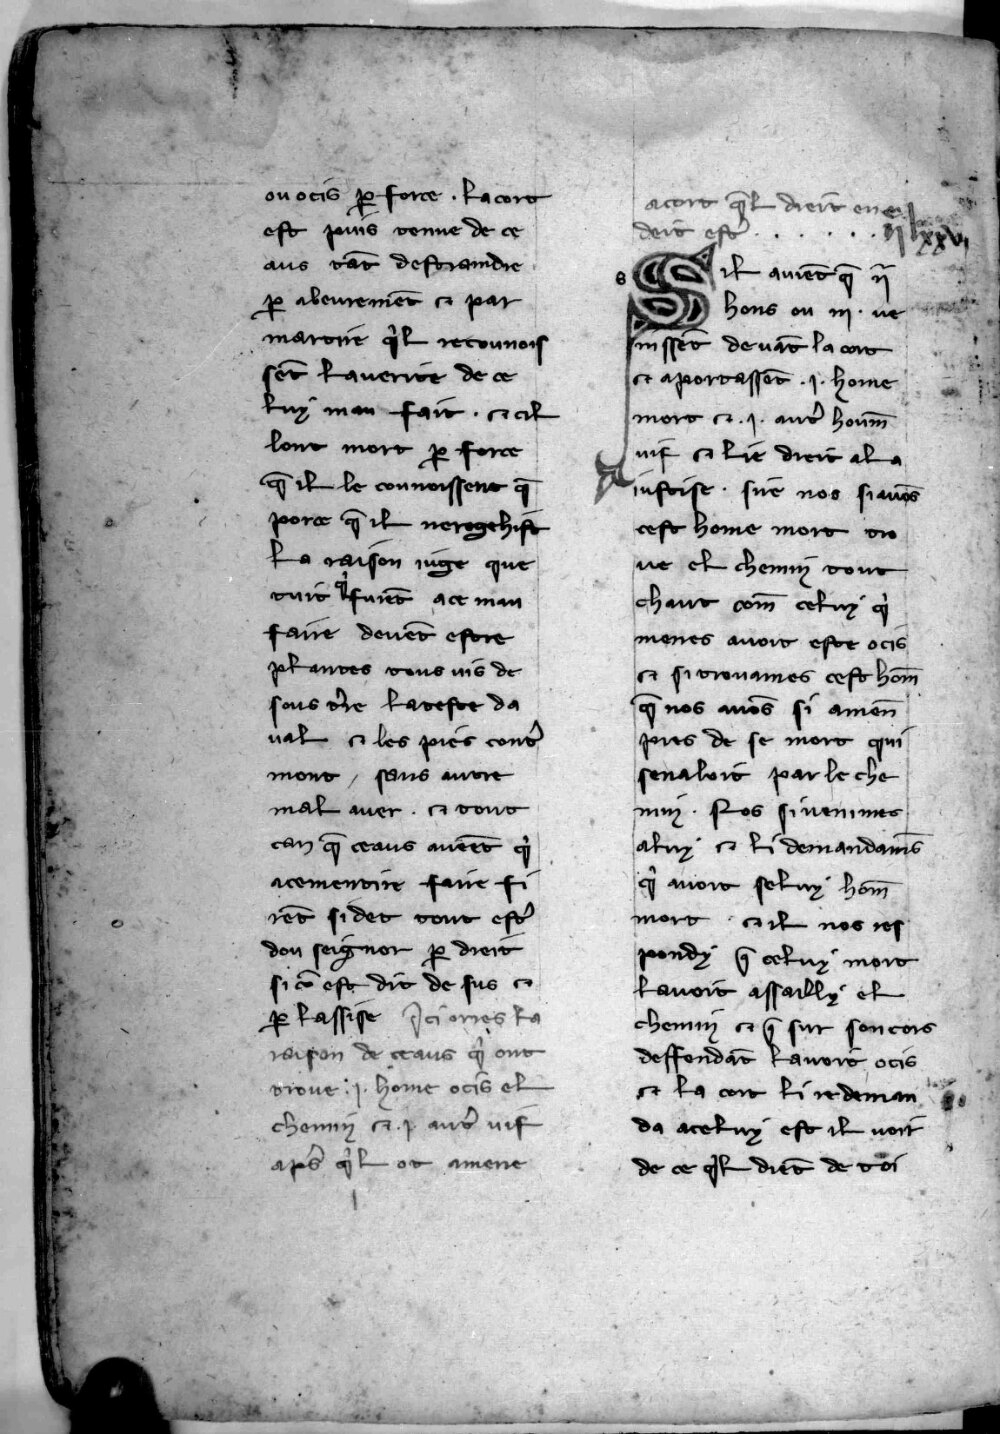 ou ocis ꝑ force · la cort
est puis tenue de ce
aus tāt destraindre
ꝑ abeuremēt ⁊ par
martire qͥl reconnois
sēt la uerite de ce
luy mau fait · ⁊ cil
sont mort ꝑ force
q̄ il le connoissent q̄
porce q̄ il ne regehist
la raison iuge que
tuit qͥ furēt a ce mau
faire deuēt estre
plantes tous uis de
sous t̾re la teste da
ual ⁊ les pies cont̾
mont / sans autre
mal auer · ⁊ tout
can q̄ ceaus auēēt qͥ
ace mentire faire fi
rēt si det tout est̾
dou seignor ꝑ dreit
si cō est dit de sus ⁊
ꝑ lassise Ici ores la
raison de ceaus qͥ ont
troue · j · home ocis el
chemin ⁊ · j · aut̾ uif
apͥs qͥl ot amene
acort q̄l dreit en
deit est̾ . . . . . . ij lxxvi
s
Sil auiēt q̄ ij
homs ou iij · ue
nissēt deuāt la cort
⁊ aportassēt · j · home
mort ⁊ · j · aut̾ houm̄
uif ⁊ lie dreit a la
iustise · sire nos si auōs
cest home mort tro
ue el chemin tout
chaut com̄ celuy qͥ
menes auoit este ocis
⁊ si trouames cest hom̄
q̄ nos auōs si amen̄
pres de se mort qui
senaloit par le che
min · Nos si uenimes
a luy ⁊ li demandam̄s
qͥ auoit seluy hom̄
mort · ⁊ il nos res
pondy q̄ celuy mort
lauoit assailly el
chemin ⁊ q̄ sur son cors
deffendāt lauoit ocis
⁊ la cort li redeman
da a celuy est il uoir
de ce qͥl diēt de toi